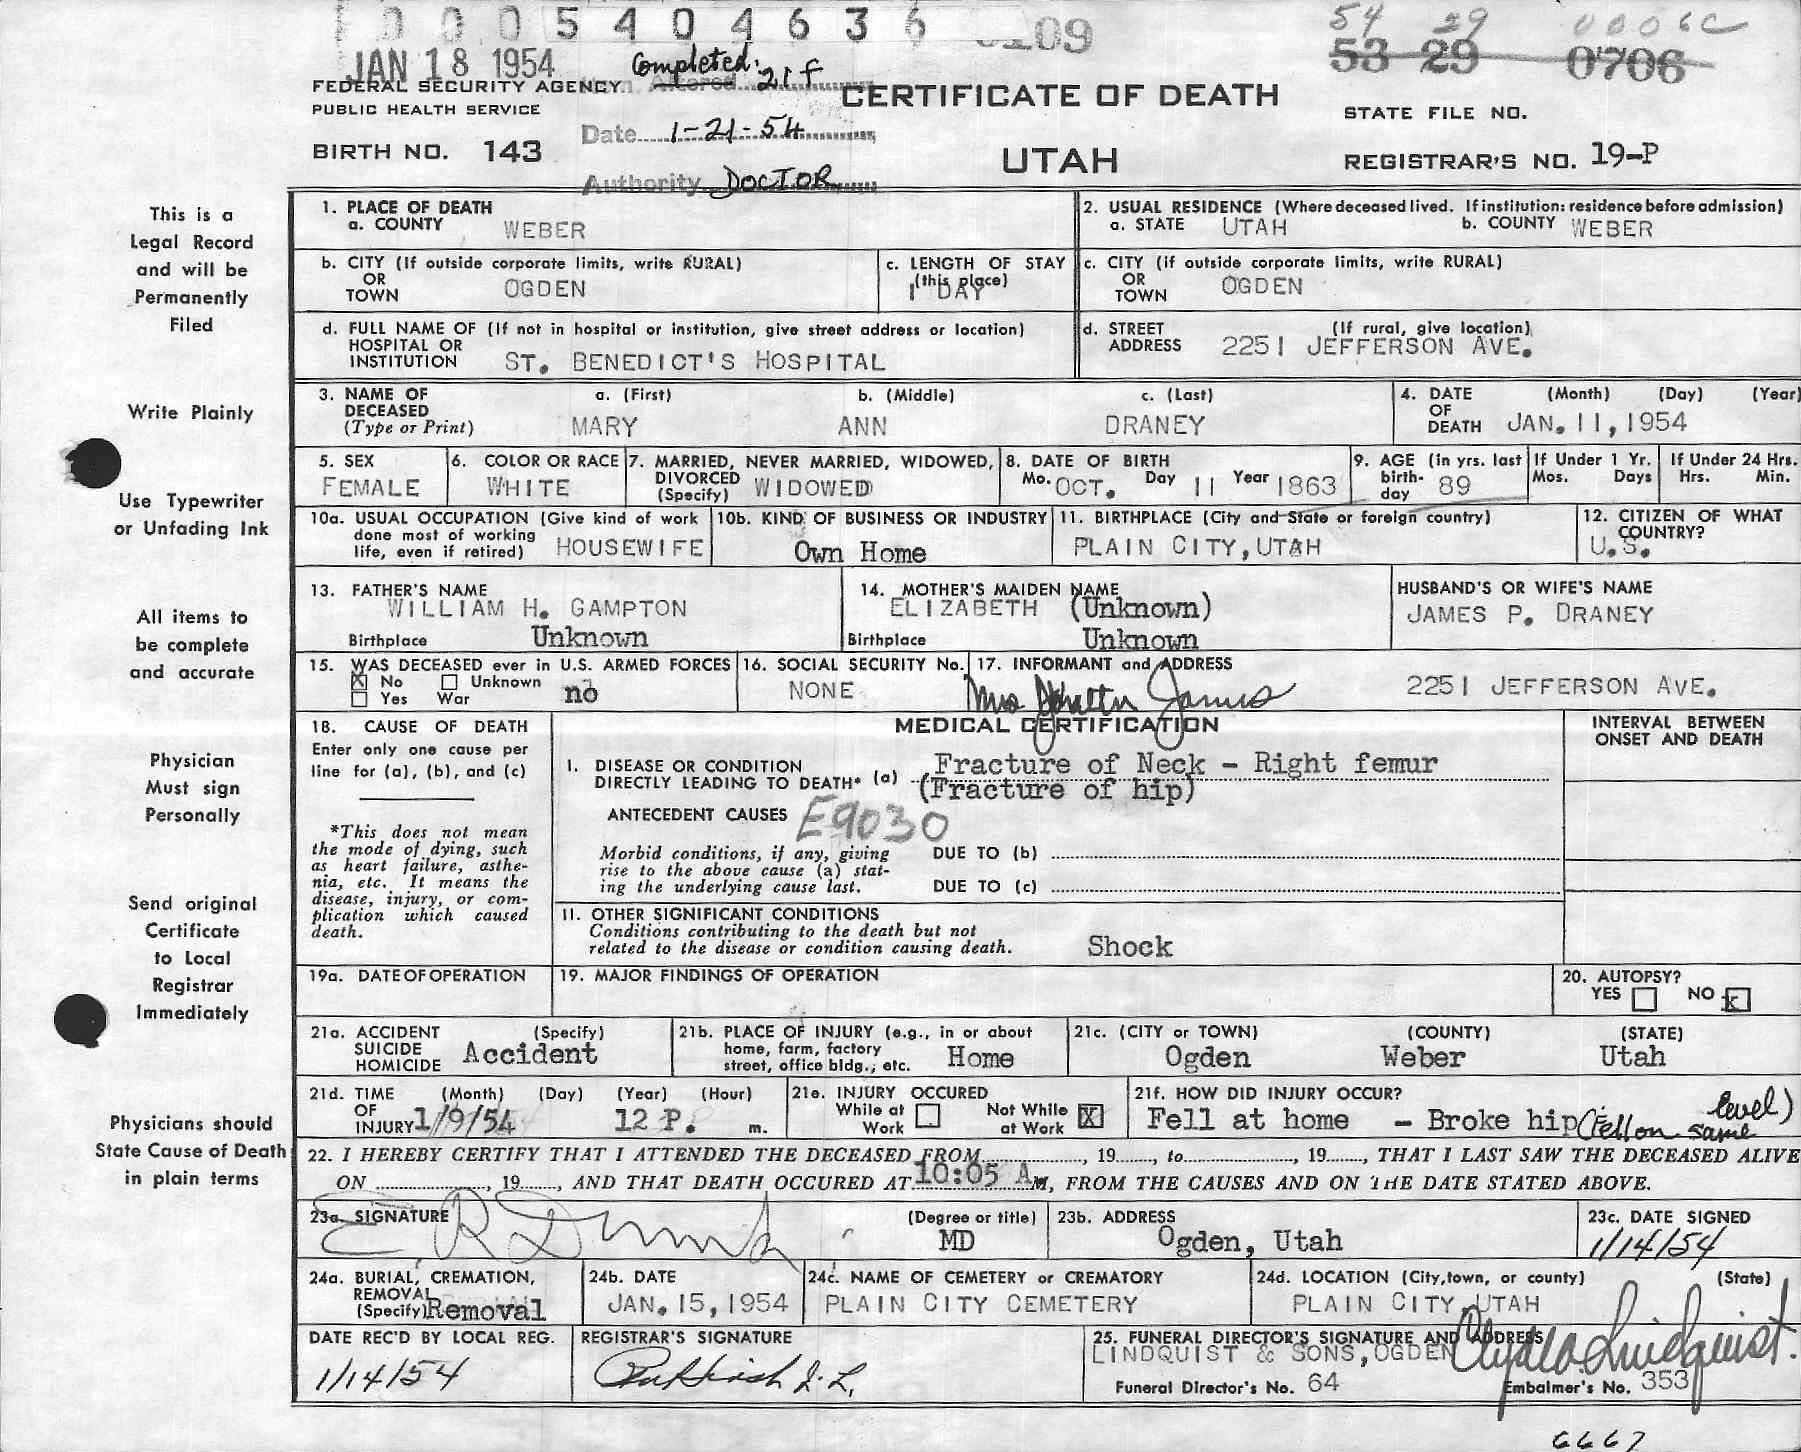 0 0 0 5 4 0 4 6 3 6
0109
54 29 0006C
53 29 0706
JAN 18 1954
Completed: 21f
FEDERAL SECURITY AGENCY
Altered
PUBLIC HEALTH SERVICE
CERTIFICATE OF DEATH
STATE FILE NO.
Date 1-21-54
BIRTH NO. 143
UTAH
REGISTRAR'S NO. 19-P
Authority DOCTOR
This is a
Legal Record
and will be
Permanently
Filed
Write Plainly
Use Typewriter
or Unfading Ink
All items to
be complete
and accurate
Physician
Must sign
Personally
Send original
Certificate
to Local
Registrar
Immediately
Physicians should
State Cause of Death
in plain terms
1. PLACE OF DEATH
a. COUNTY WEBER
2. USUAL RESIDENCE (Where deceased lived. If institution: residence before admission)
a. STATE UTAH b. COUNTY WEBER
b. CITY (If outside corporate limits, write RURAL)
OR
TOWN OGDEN
c. LENGTH OF STAY
(this place)
1 DAY
c. CITY (if outside corporate limits, write RURAL)
OR
TOWN OGDEN
d. FULL NAME OF (If not in hospital or institution, give street address or location)
HOSPITAL OR
INSTITUTION ST. BENEDICT'S HOSPITAL
d. STREET (If rural, give location)
ADDRESS 2251 JEFFERSON AVE.
3. NAME OF a. (First) b. (Middle) c. (Last)
DECEASED
(Type or Print) MARY ANN DRANEY
4. DATE (Month) (Day) (Year)
OF
DEATH JAN. 11, 1954
5. SEX
FEMALE
6. COLOR OR RACE
WHITE
7. MARRIED, NEVER MARRIED, WIDOWED,
DIVORCED
(Specify) WIDOWED
8. DATE OF BIRTH
Mo. OCT. Day 11 Year 1863
9. AGE (in yrs. last
birth-
day 89
If Under 1 Yr.
Mos. Days
If Under 24 Hrs.
Hrs. Min.
10a. USUAL OCCUPATION (Give kind of work
done most of working
life, even if retired) HOUSEWIFE
10b. KIND OF BUSINESS OR INDUSTRY
Own Home
11. BIRTHPLACE (City and State or foreign country)
PLAIN CITY, UTAH
12. CITIZEN OF WHAT
COUNTRY?
U.S.
13. FATHER'S NAME
WILLIAM H. GAMPTON
Birthplace Unknown
14. MOTHER'S MAIDEN NAME
ELIZABETH (Unknown)
Birthplace Unknown
HUSBAND'S OR WIFE'S NAME
JAMES P. DRANEY
15. WAS DECEASED ever in U.S. ARMED FORCES
X No Unknown
Yes War no
16. SOCIAL SECURITY No.
NONE
17. INFORMANT and ADDRESS
Mrs James
2251 JEFFERSON AVE.
18. CAUSE OF DEATH
Enter only one cause per
line for (a), (b), and (c)
*This does not mean
the mode of dying, such
as heart failure, asthe-
nia, etc. It means the
disease, injury, or com-
plication which caused
death.
MEDICAL CERTIFICATION
INTERVAL BETWEEN
ONSET AND DEATH
I. DISEASE OR CONDITION
DIRECTLY LEADING TO DEATH* (a) Fracture of Neck - Right femur
(Fracture of hip)
ANTECEDENT CAUSES E9030
Morbid conditions, if any, giving
rise to the above cause (a) stat-
ing the underlying cause last.
DUE TO (b)
DUE TO (c)
II. OTHER SIGNIFICANT CONDITIONS
Conditions contributing to the death but not
related to the disease or condition causing death. Shock
19a. DATE OF OPERATION
19. MAJOR FINDINGS OF OPERATION
20. AUTOPSY?
YES NO x
21a. ACCIDENT (Specify)
SUICIDE
HOMICIDE Accident
21b. PLACE OF INJURY (e.g., in or about
home, farm, factory
street, office bldg.; etc. Home
21c. (CITY or TOWN) (COUNTY) (STATE)
Ogden Weber Utah
21d. TIME (Month) (Day) (Year) (Hour)
OF
INJURY 1/9/54 12 P. m.
21e. INJURY OCCURED
While at Work Not While at Work X
21f. HOW DID INJURY OCCUR?
Fell at home - Broke hip (Fell on same level)
22. I HEREBY CERTIFY THAT I ATTENDED THE DECEASED FROM , 19 , to , 19 , THAT I LAST SAW THE DECEASED ALIVE
ON , 19 , AND THAT DEATH OCCURED AT 10:05 A M, FROM THE CAUSES AND ON THE DATE STATED ABOVE.
23a. SIGNATURE (Degree or title)
MD
23b. ADDRESS
Ogden, Utah
23c. DATE SIGNED
1/14/54
24a. BURIAL, CREMATION,
REMOVAL
(Specify) Removal
24b. DATE
JAN. 15, 1954
24c. NAME OF CEMETERY or CREMATORY
PLAIN CITY CEMETERY
24d. LOCATION (City, town, or county) (State)
PLAIN CITY, UTAH
DATE REC'D BY LOCAL REG.
1/14/54
REGISTRAR'S SIGNATURE
25. FUNERAL DIRECTOR'S SIGNATURE AND ADDRESS
LINDQUIST & SONS, OGDEN Lindquist.
Funeral Director's No. 64 Embalmer's No. 353
6667